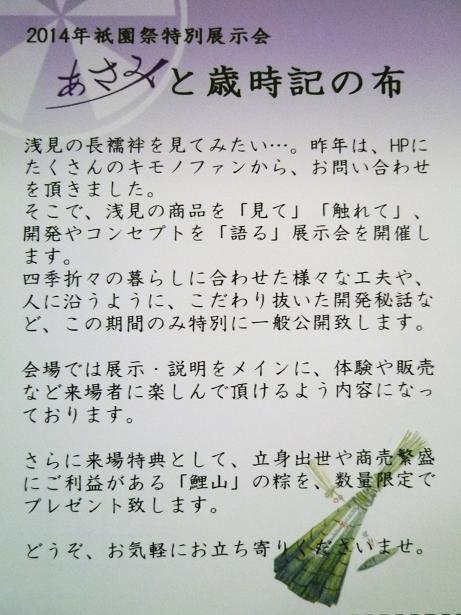 2014年祇園祭特別展示会
あさみと歳時記の布
浅見の長襦袢を見てみたい…。昨年は、HPに
たくさんのキモノファンから、お問い合わせ
を頂きました。
そこで、浅見の商品を「見て」「触れて」、
開発やコンセプトを「語る」展示会を開催し
ます。
四季折々の暮らしに合わせた様々な工夫や、
人に沿うように、こだわり抜いた開発秘話な
ど、この期間のみ特別に一般公開致します。
会場では展示・説明をメインに、体験や販売
など来場者に楽しんで頂けるよう内容になっ
ております。
さらに来場特典として、立身出世や商売繁盛
にご利益がある「鯉山」の粽を、数量限定で
プレゼント致します。
どうぞ、お気軽にお立ち寄りくださいませ。